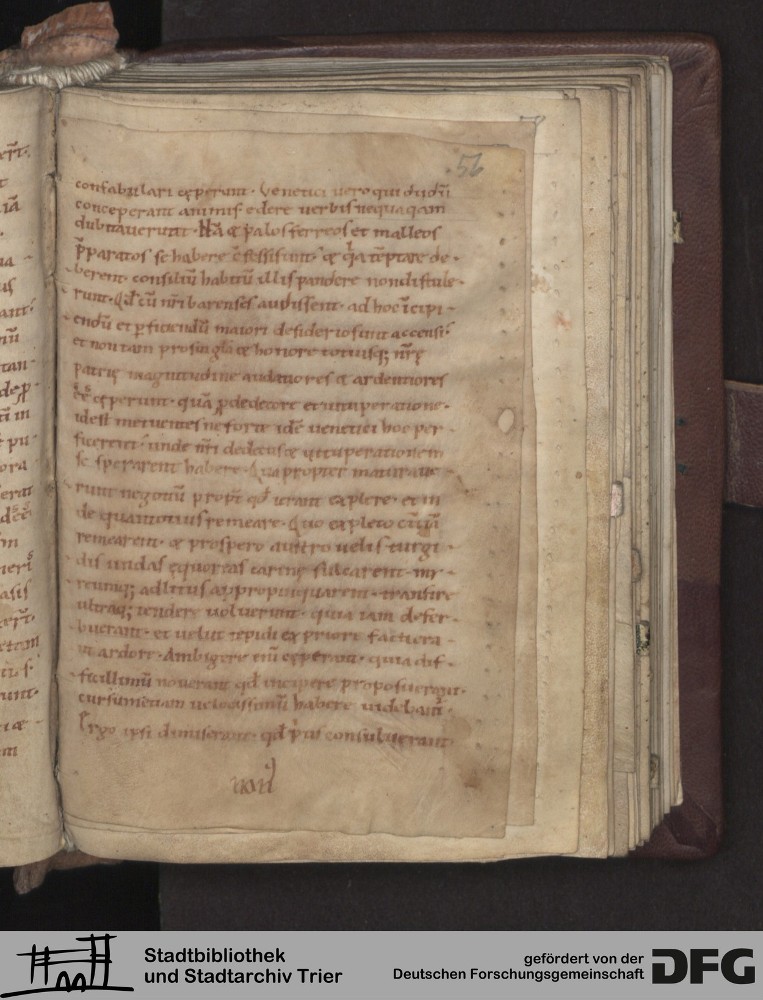 56
confabulari ceperunt. Venetici uero qui dudū
conceperant animis edere uerbis nequaquam
dubitauerunt. Nā & palos ferreos et malleos
p̄paratos se habere
berent. consiliū habitū illis pandere non distule
runt. Qd̄ cū nr̄i barenses audissent. ad hoc īcipi
endū et ꝑficiendū maiori desiderio sunt accensi.
et non tam pro sua gl̄a & honore totiusq; nr̄ę
patrię magnitudine audatiores & ardentiores
ceperunt. quā ꝓ dedecore et uituperatione.
idest metuentes ne forte idē uenetici hoc per
ficerent. unde nr̄i dedecus & uituperationem
se sperarent habere. Quapropter maturaue
runt negotiū propt̄ qd̄ ierant explere. et in
de quantotius remeare. Quo expleto cū
remearent. & prospero austro uelis turgi
dis undas ęquoreas carinę sulcarent.
adlitus appropinquarent. transire
ultraq; tendere uoluerunt. quia iam defer
buerant. et uelut tepidi ex priore facti erant
ardore. Ambigere ceperunt. quia dif
ficillimū nouerant qd̄ incipere proposuerant.
cursum etiam uelocissimū habere uidebant.
Ergo ipsi dimiserant. qd̄ p̄us consuluerant
Stadtbibliothek
und Stadtarchiv Trier
gefördert von der
Deutschen Forschungsgemeinschaft
DFG